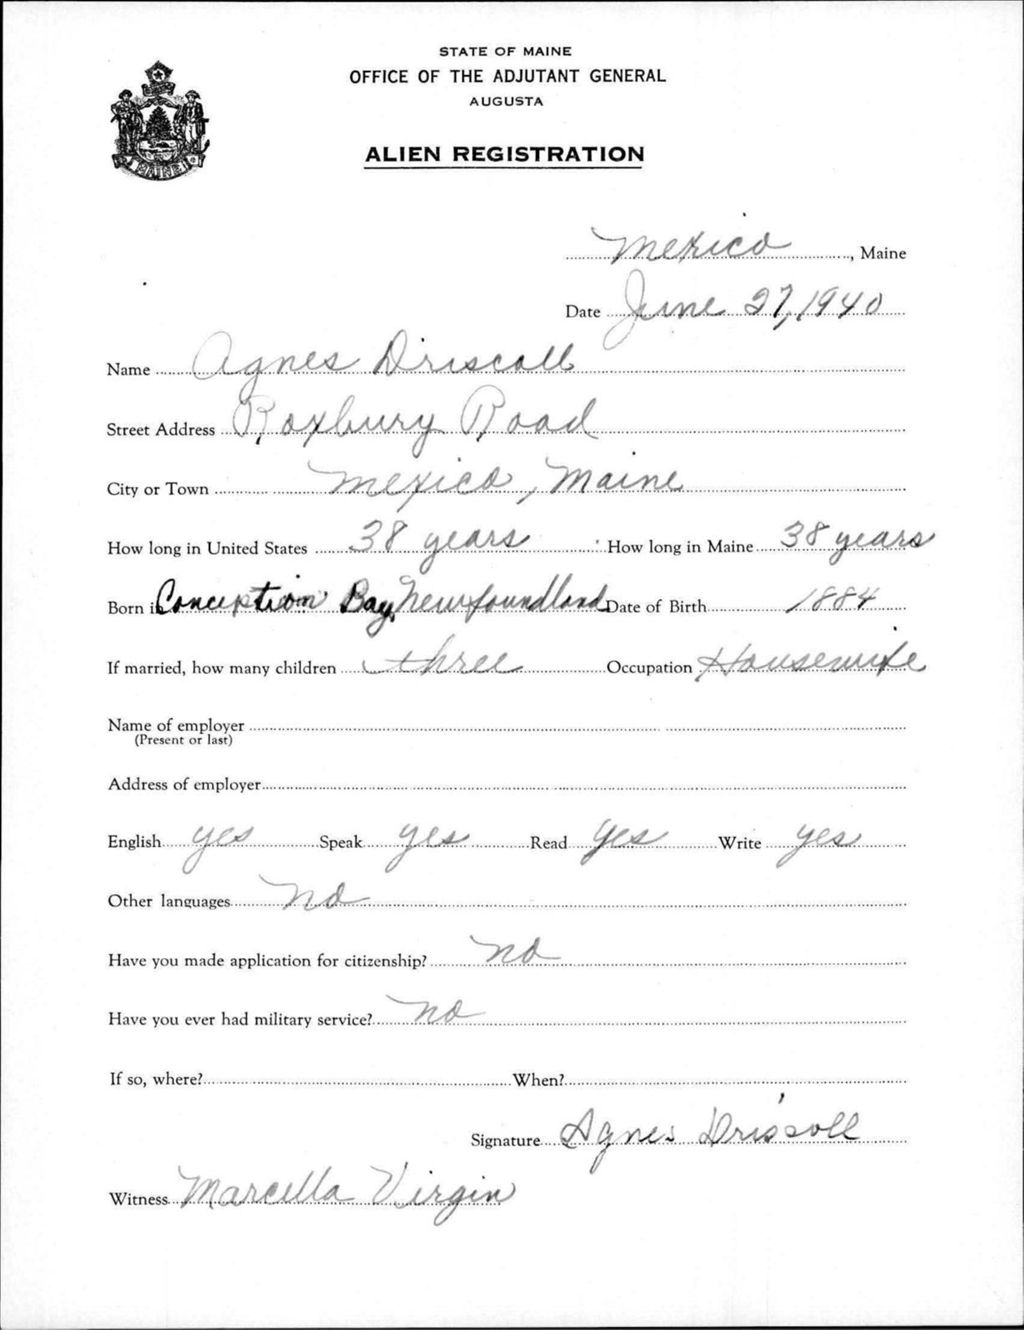 STATE OF MAINE
OFFICE OF THE ADJUTANT GENERAL
AUGUSTA
ALIEN REGISTRATION
MAINE
Mexico, Maine
Date June 27, 1940
Name Agnes Driscoll
Street Address Roxbury Road
City or Town Mexico, Maine
How long in United States 38 years How long in Maine 38 years
Born in Conception Bay, Newfoundland Date of Birth 1884
If married, how many children three Occupation Housewife
Name of employer
(Present or last)
Address of employer
English yes Speak yes Read yes Write yes
Other languages no
Have you made application for citizenship? no
Have you ever had military service? no
If so, where? When?
Signature Agnes Driscoll
Witness Marcella Virgin